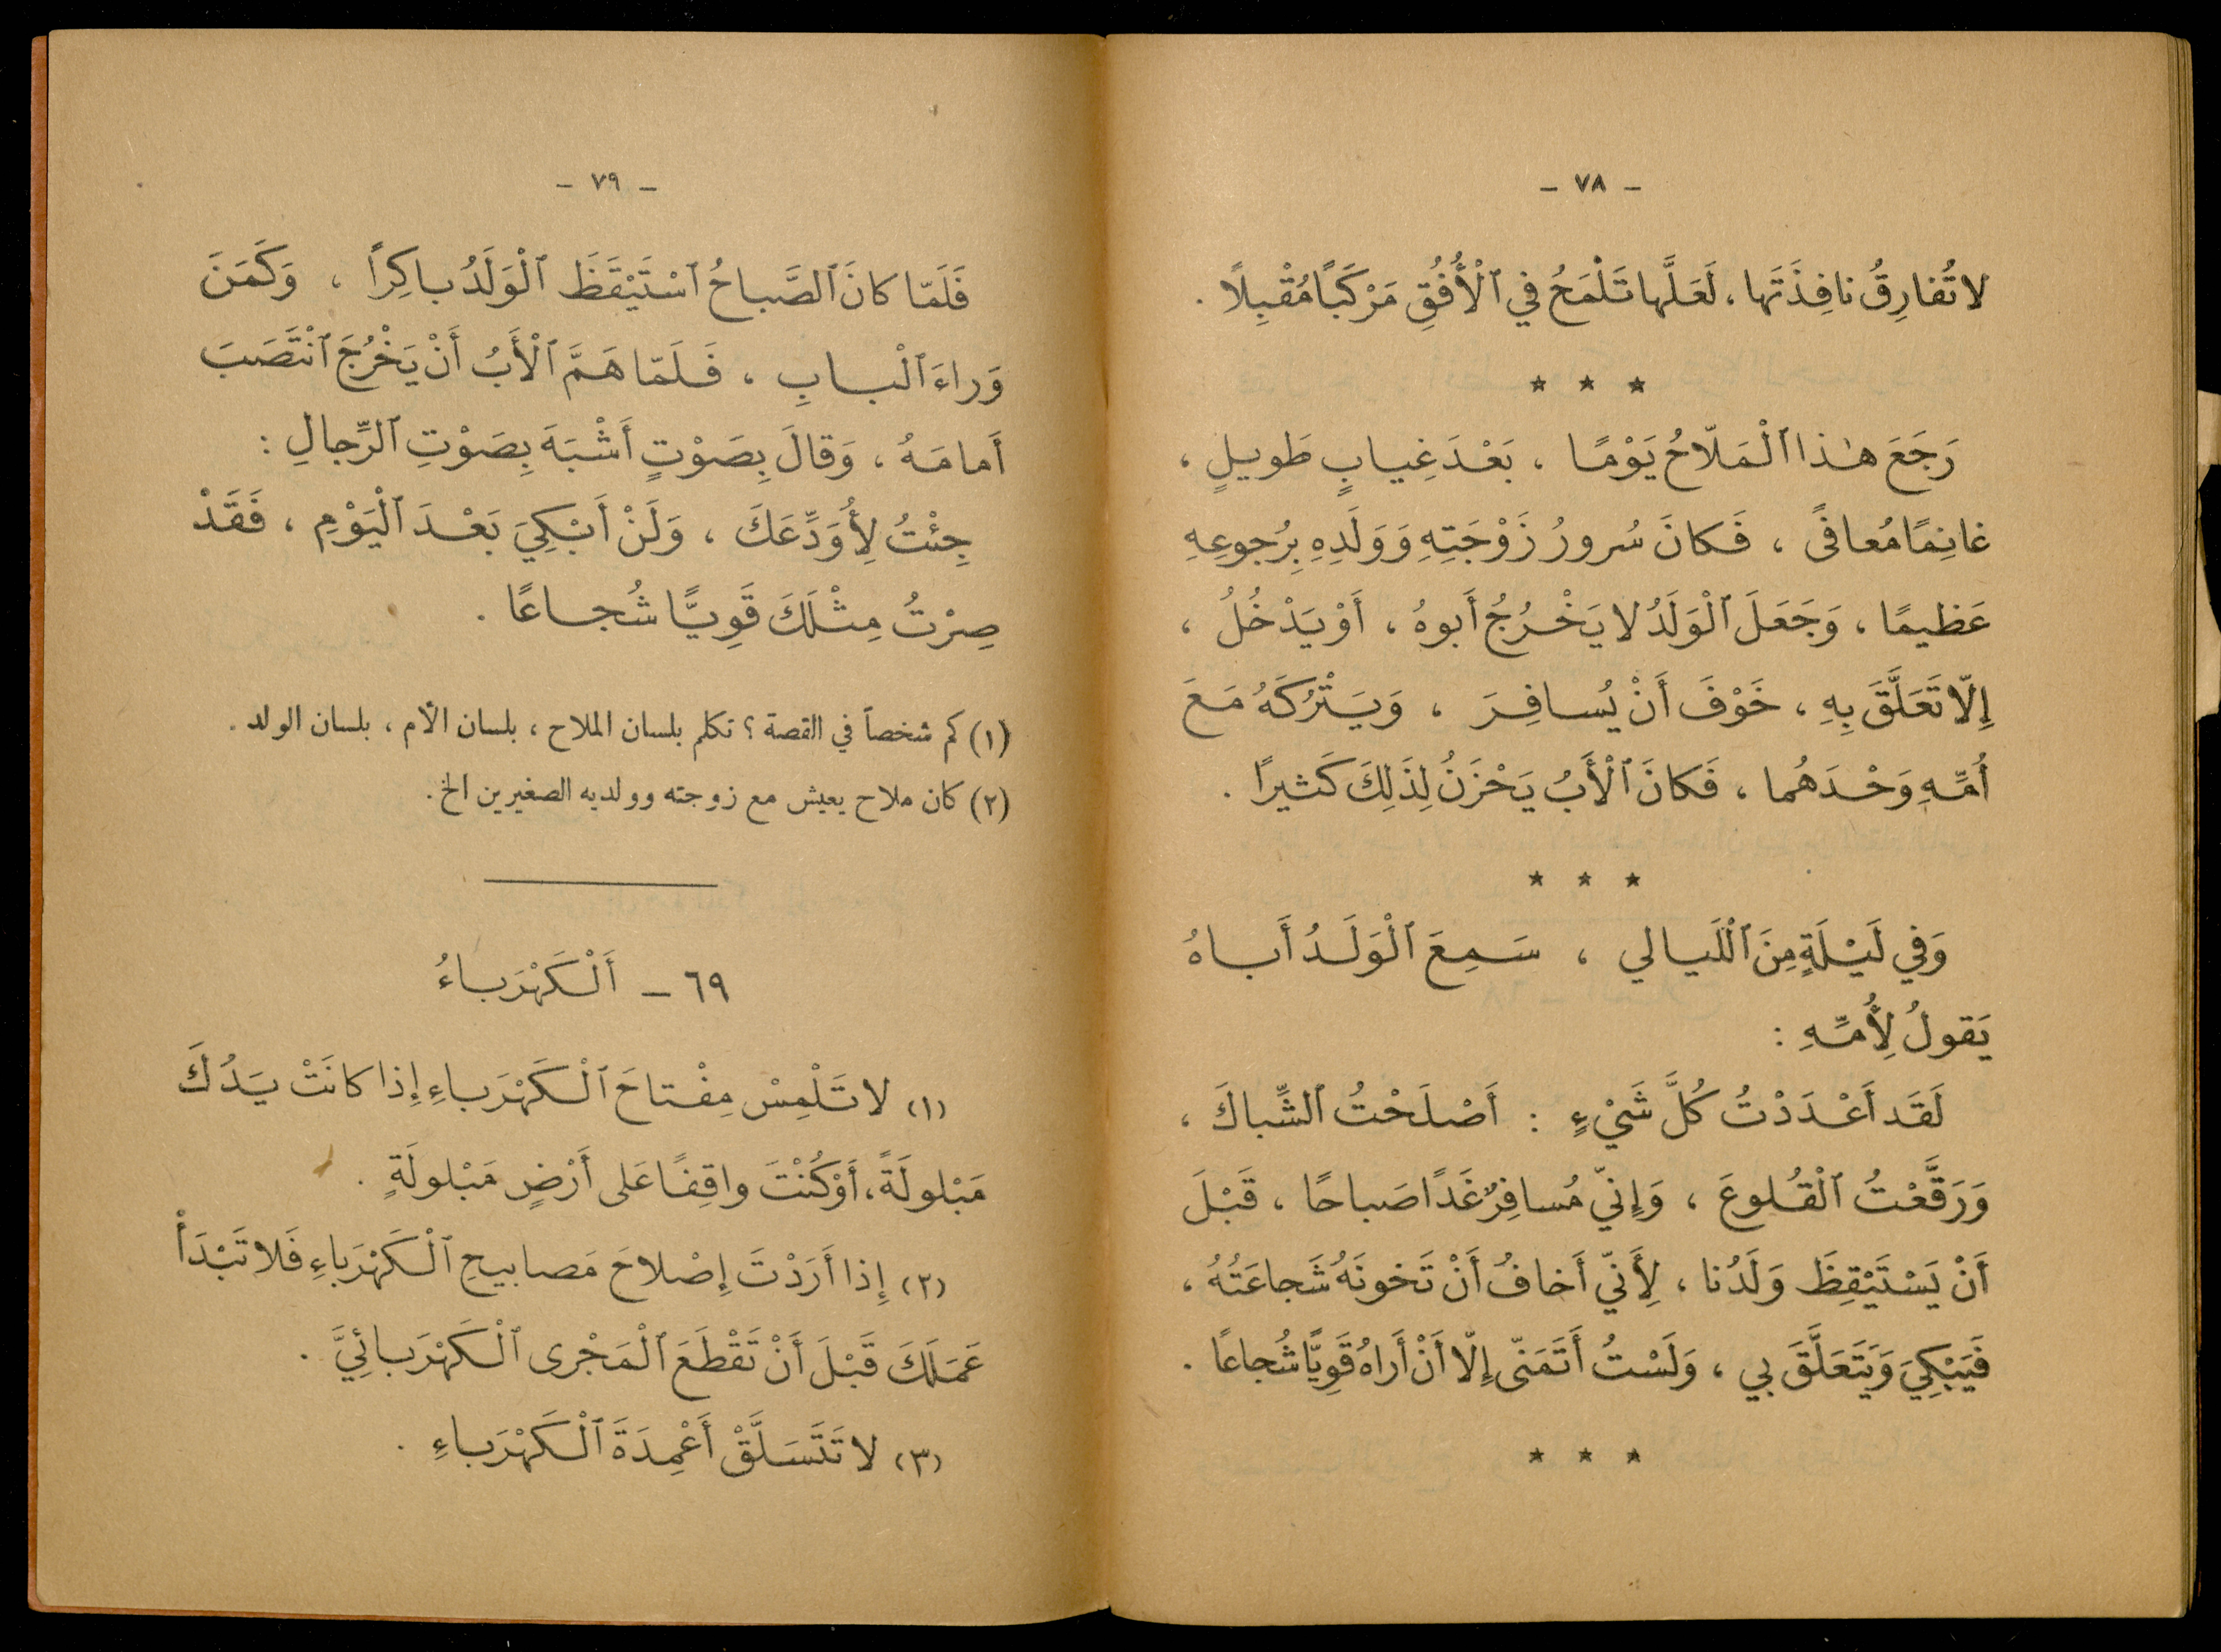 - ٧٨ -
لا تُفارِقُ نافِذَتَها، لَعَلَّها تَلْمَحُ في ٱلْأُفُقِ مَرْكَبًا مُقْبِلًا .
* * *
رَجَعَ هٰذا ٱلْمَلّاحُ يَوْمًا ، بَعْدَ غِيابٍ طَويلٍ ،
غانِمًا مُعافىً ، فَكانَ سُرورُ زَوْجَتِهِ وَوَلَدِهِ بِرُجوعِهِ
عَظيمًا ، وَجَعَلَ ٱلْوَلَدُ لا يَخْرُجُ أَبوهُ ، أَوْ يَدْخُلُ ،
إِلّا تَعَلَّقَ بِهِ ، خَوْفَ أَنْ يُسافِرَ ، وَيَتْرُكَهُ مَعَ
أُمِّهِ وَحْدَهُما ، فَكانَ ٱلْأَبُ يَحْزَنُ لِذَلِكَ كَثيرًا .
* * *
وَفي لَيْلَةٍ مِنَ ٱلْلَيالي ، سَمِعَ ٱلْوَلَدُ أَباهُ
يَقولُ لِأُمِّهِ :
لَقَد أَعْدَدْتُ كُلَّ شَيْءٍ : أَصْلَحْتُ ٱلشِّباكَ ،
وَرَقَّعْتُ ٱلْقُلوعَ ، وَإِنّي مُسافِرٌ غَدًا صَباحًا ، قَبْلَ
أَنْ يَسْتَيْقِظَ وَلَدُنا ، لِأَنّي أَخافُ أَنْ تَخونَهُ شَجاعَتُهُ ،
فَيَبْكِيَ وَيَتَعَلَّقَ بي ، وَلَسْتُ أَتَمَنّى إِلّا أَنْ أَراهُ قَوِيًّا شُجاعًا .
* * *
- ٧٩ -
فَلَمّا كانَ ٱلصَّباحُ ٱسْتَيْقَظَ ٱلْوَلَدُ باكِراً ، وَكَمَنَ
وَراءَ ٱلْبابِ ، فَلَمّا هَمَّ ٱلْأَبُ أَنْ يَخْرُجَ ٱنْتَصَبَ
أَمامَهُ ، وَقالَ بِصَوْتٍ أَشْبَهَ بِصَوْتِ ٱلرِّجالِ :
جِئْتُ لِأُوَدِّعَكَ ، وَلَنْ أَبْكِيَ بَعْدَ ٱلْيَوْمِ ، فَقَدْ
صِرْتُ مِثْلَكَ قَوِيًّا شُجاعًا .
(١) كم شخصاً في القصة ؟ تكلم بلسان الملاح ، بلسان الأم ، بلسان الولد .
(٢) كان ملاح يعيش مع زوجته وولديه الصغيرين الخ .
٦٩ - أَلْكَهْرَباءُ
(١) لا تَلْمِسْ مِفْتاحَ ٱلْكَهْرَباءِ إِذا كانَتْ يَدُكَ
مَبْلولَةً، أَوْ كُنْتَ واقِفًا عَلى أَرْضٍ مَبْلولَةٍ .
(٢) إِذا أَرَدْتَ إِصْلاحَ مَصابيحِ ٱلْكَهْرَباءِ فَلا تَبْدَأْ
عَمَلَكَ قَبْلَ أَنْ تَقْطَعَ ٱلْمَجْرى ٱلْكَهْرَبائِيَّ .
(٣) لا تَتَسَلَّقْ أَعْمِدَةَ ٱلْكَهْرَباءِ .